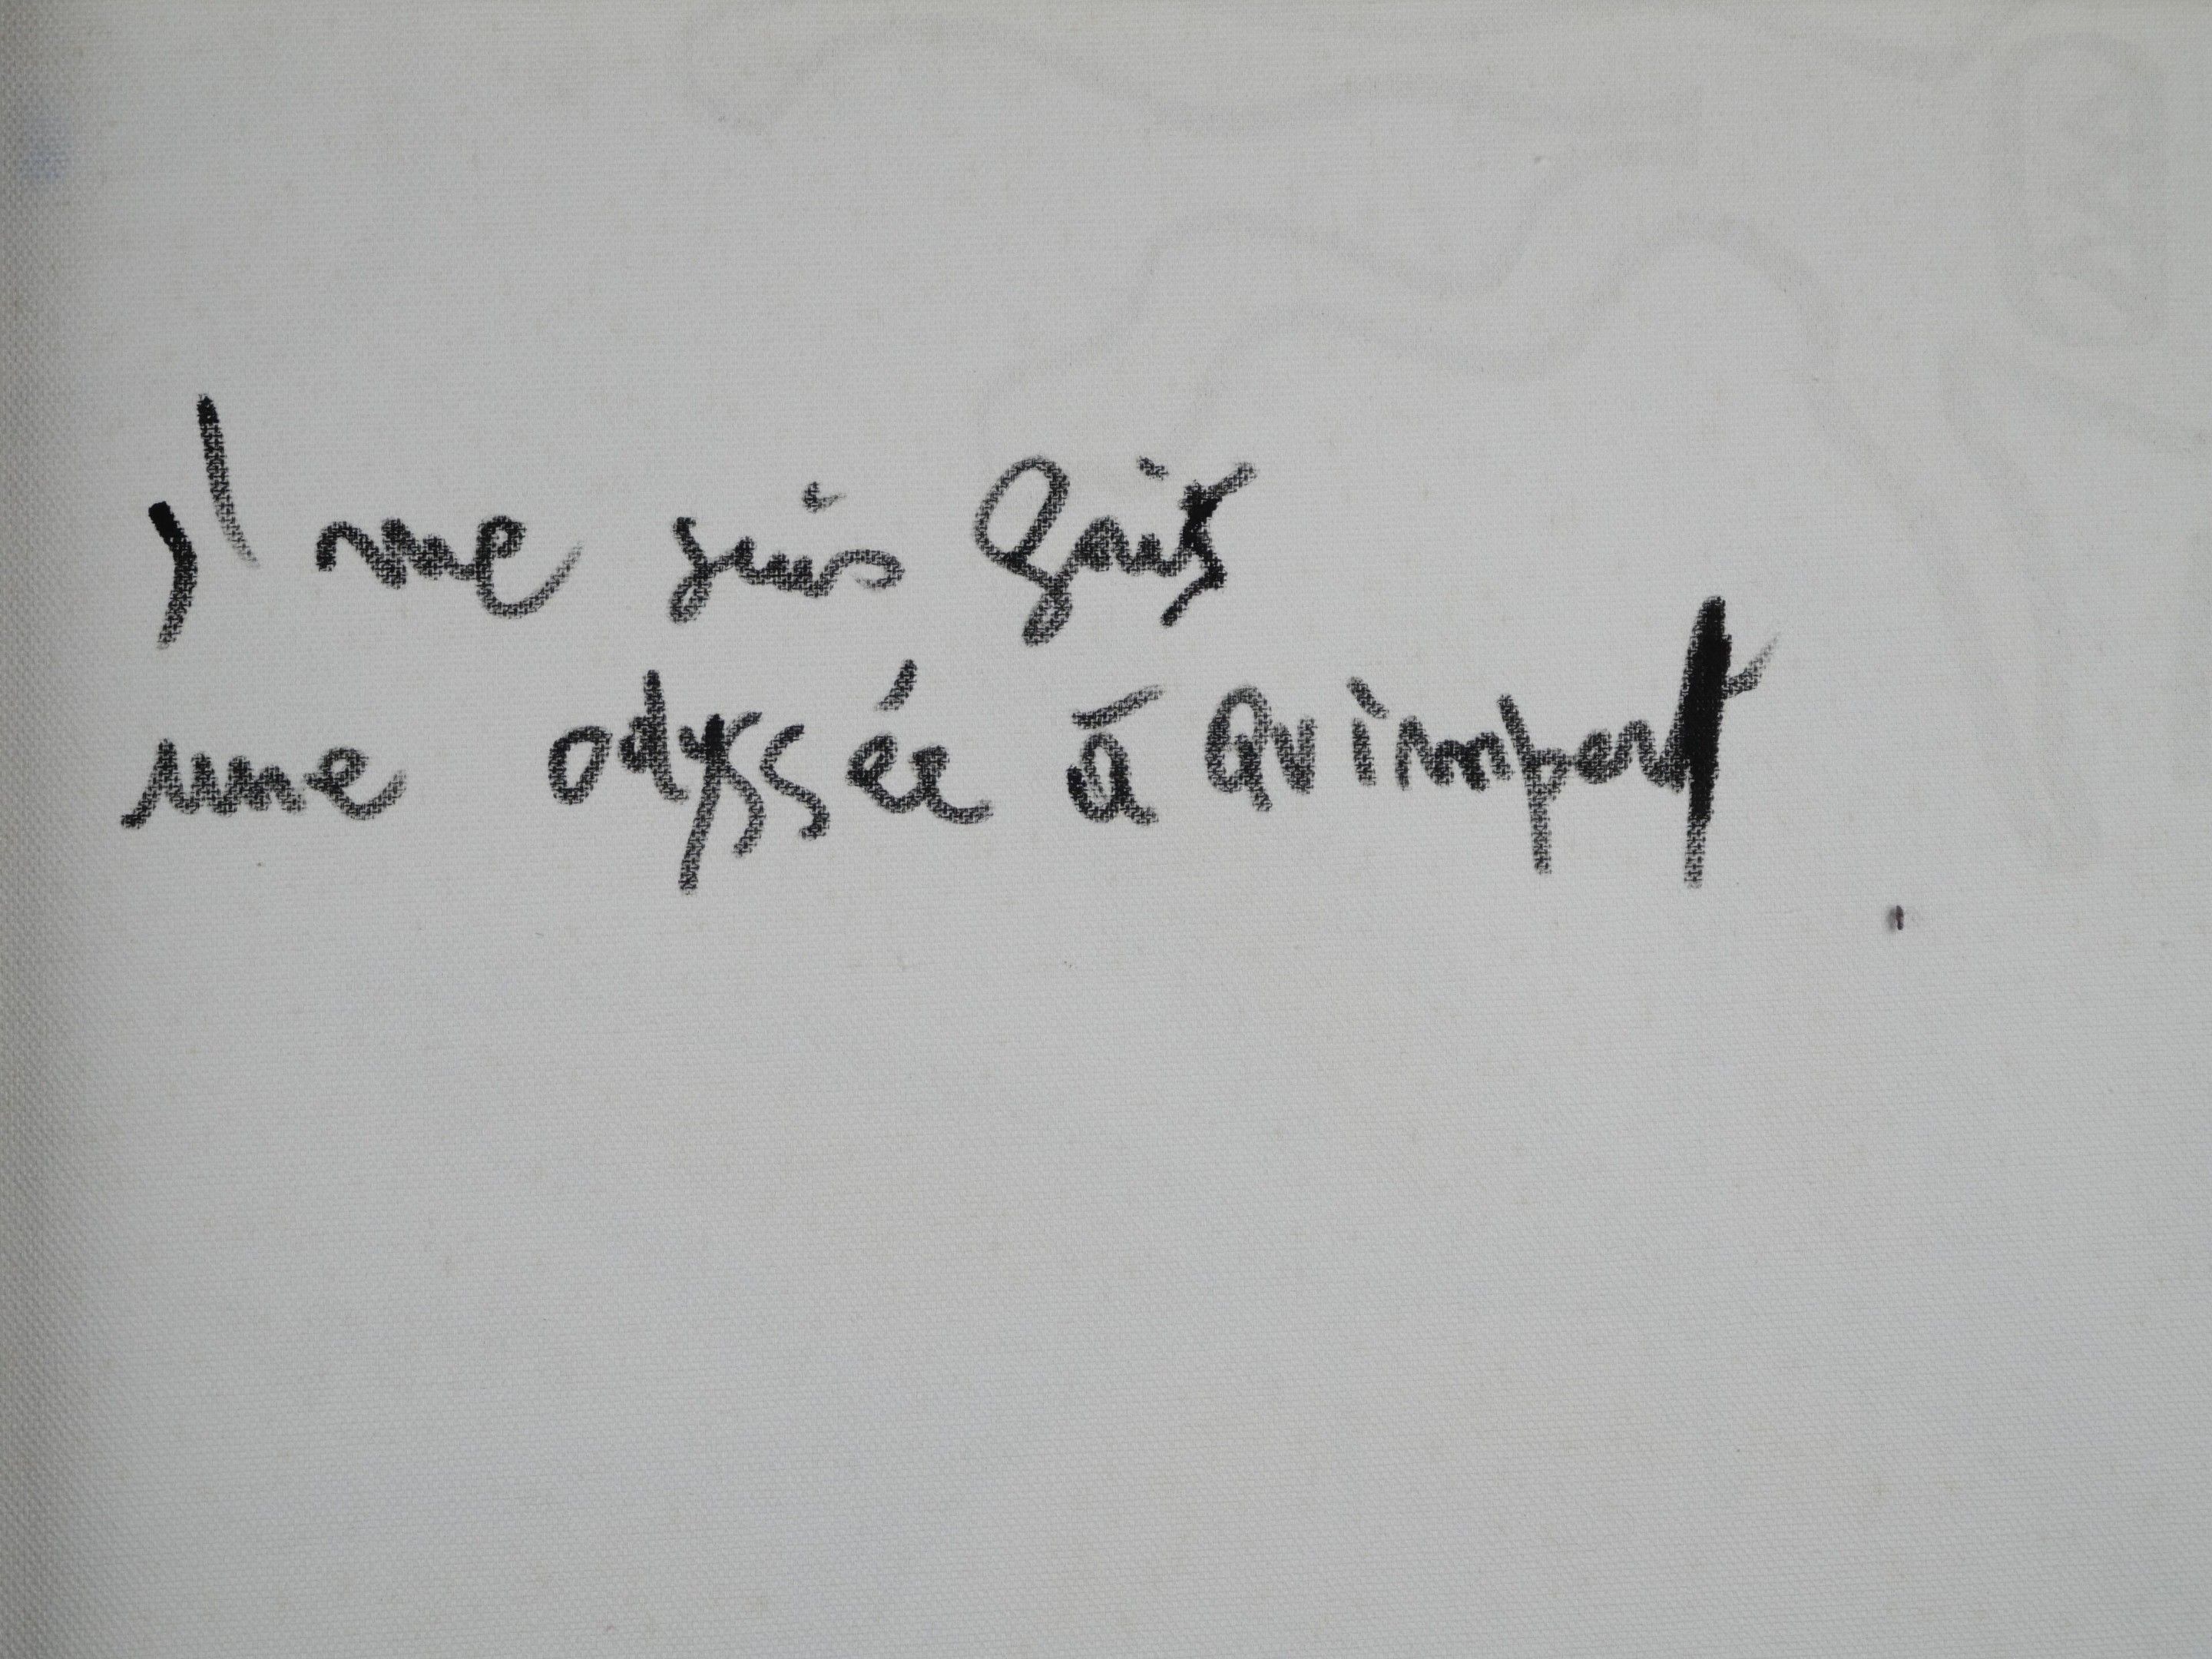 j' me suis fait
une odyssée à Quimper